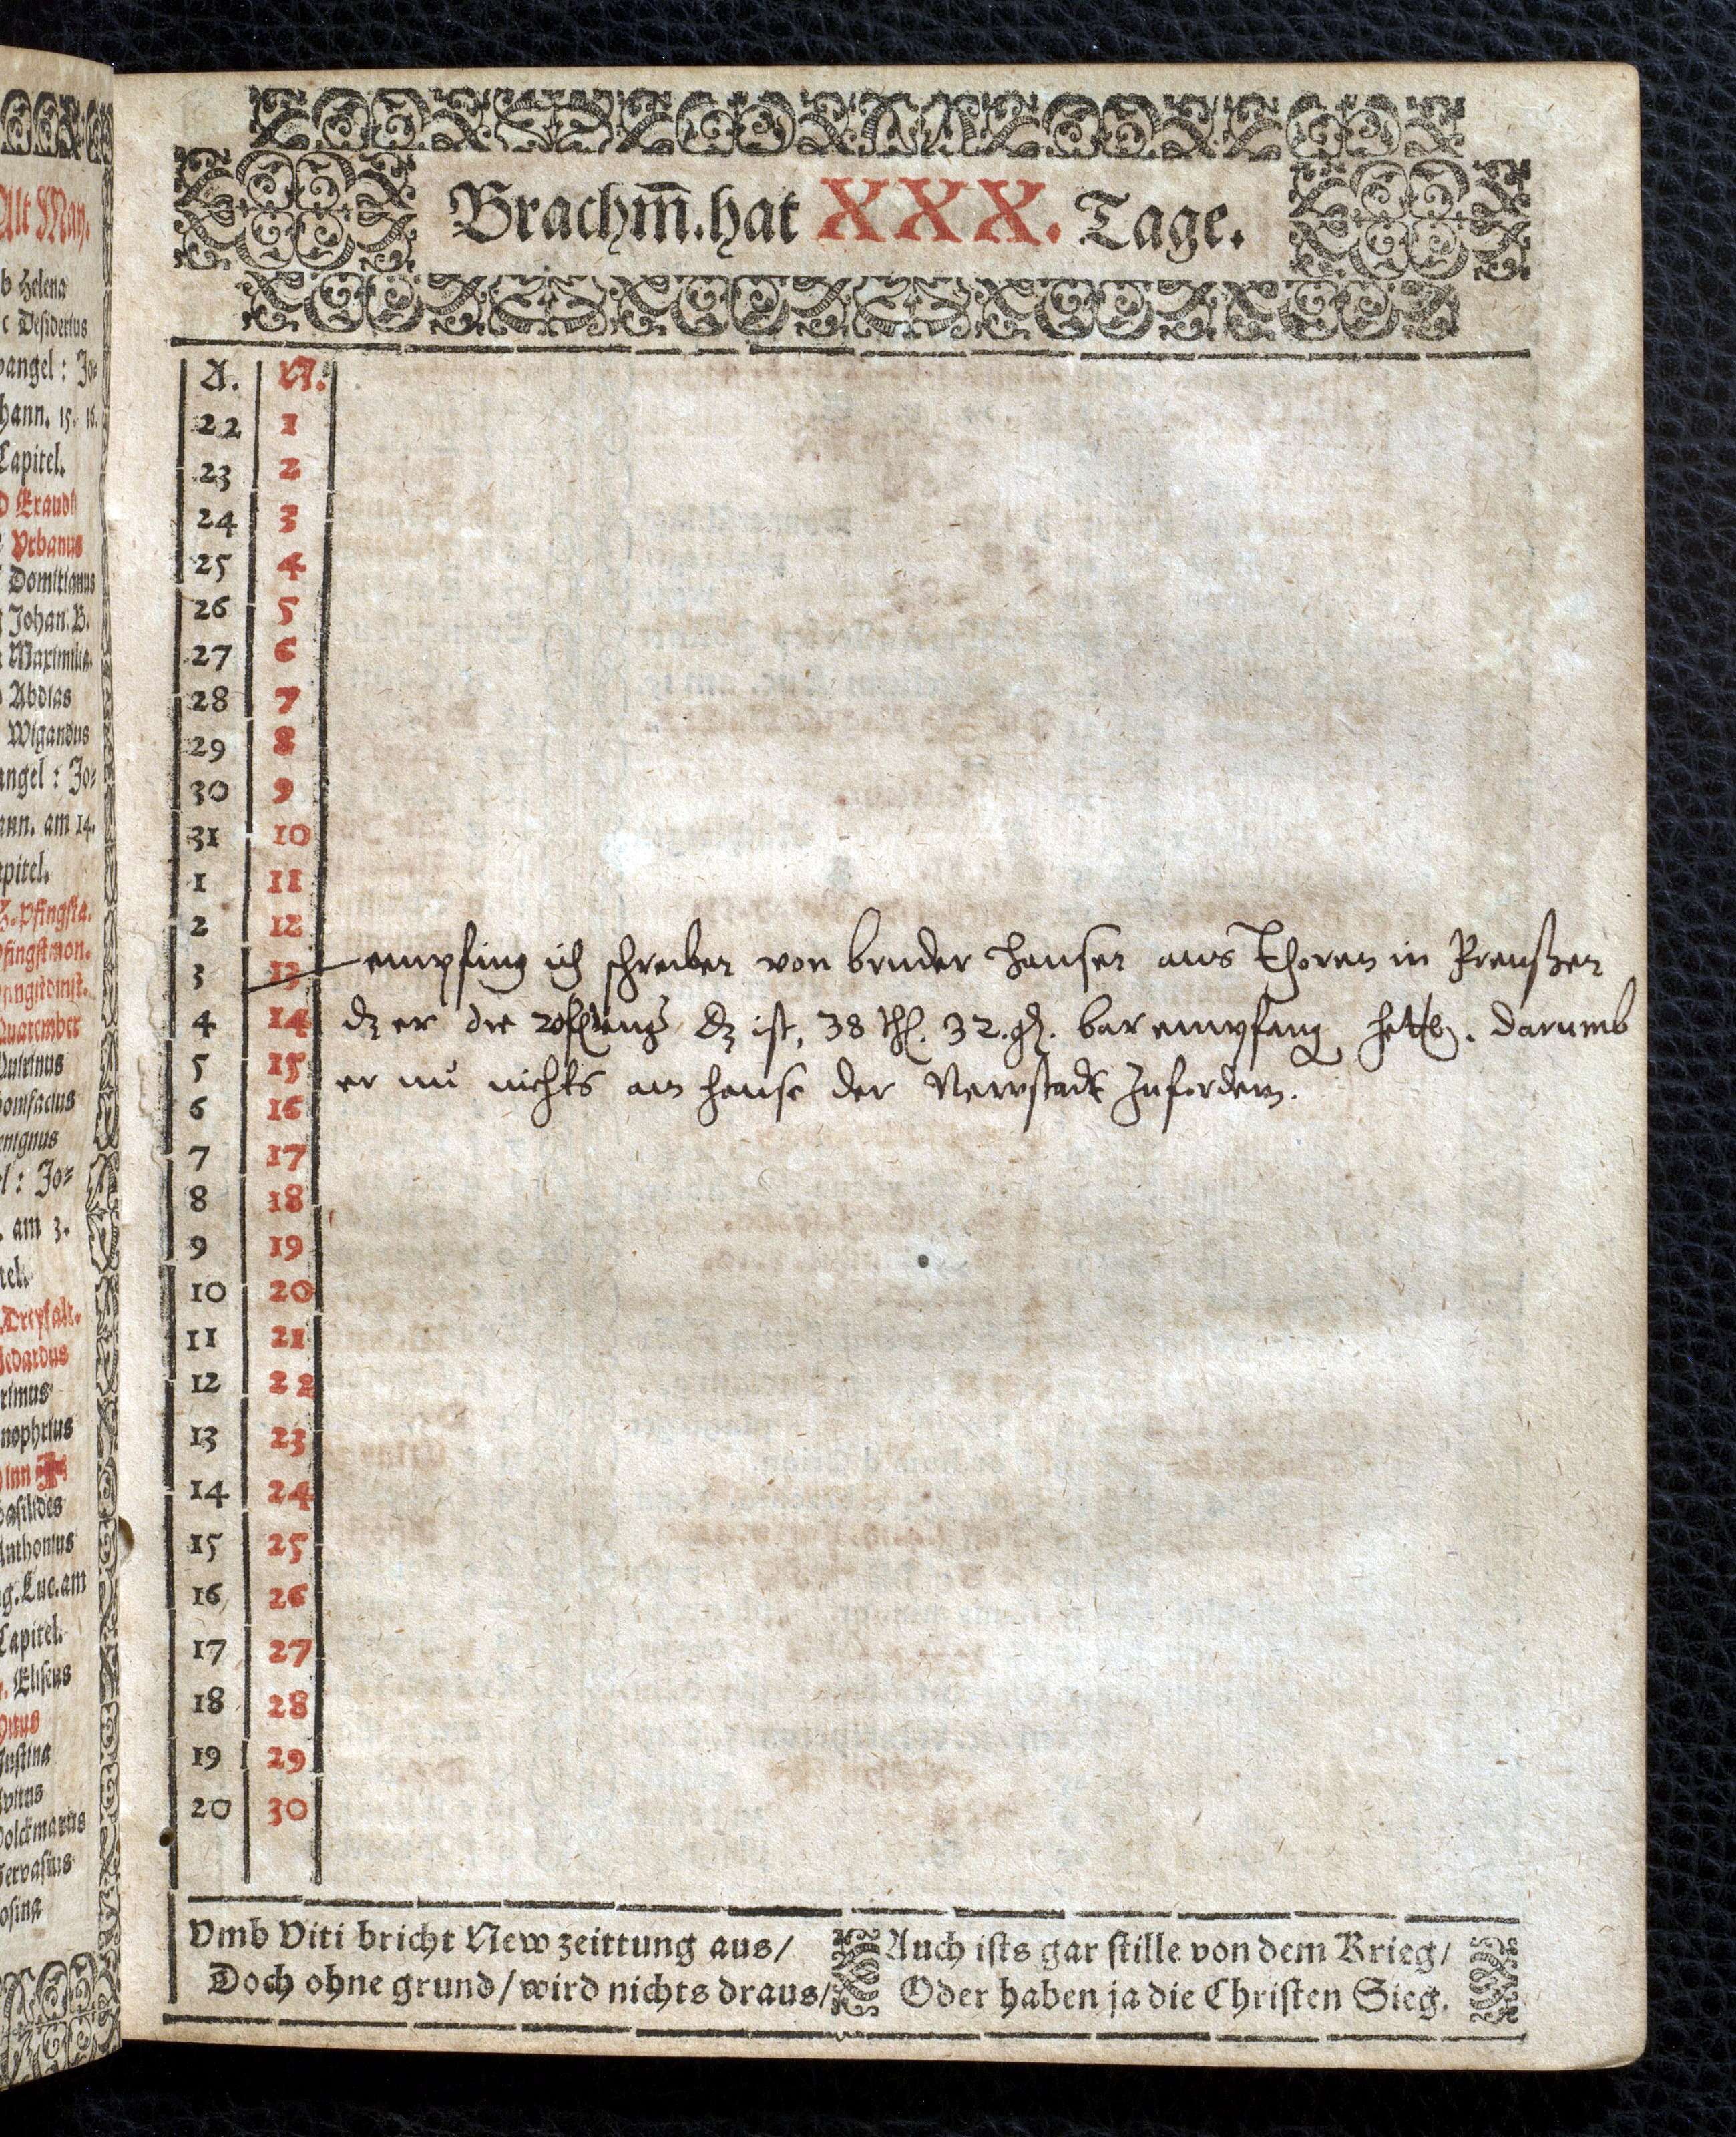 Alt May.
b Helena
c Desiderius
vangel: Jo-
hann. 15. 16.
Capitel.
D Exaudi
Vrbanus
Domitianus
Johan. B.
Maximilia.
Abdias
Wigandus
angel: Jo-
ann. am 14.
apitel.
H. Pfingsta.
Pfingstmon.
Quatember
Quirinus
Bonifacius
enignus
el: Jo-
. am 3.
tel.
Dreyfalt.
Medardus
rimus
nophrius
Basilides
Anthonius
g. Luc. am
Capitel.
Eliseus
Vitus
Justina
Volckmarus
Gervasius
osina
Brachm̃. hat XXX. Tage.
A. N.
22 1
23 2
24 3
25 4
26 5
27 6
28 7
29 8
30 9
31 10
1 11
2 12
3 13 empfing ich schreiben von bruder Hansen aus Thoren in Preußen
4 14 dz er die dz ist, 38 thl. 32. gl. bar empfang hette. darumb
5 15 er nu nichts an hause der Newstadt Zufordern.
6 16
7 17
8 18
9 19
10 20
11 21
12 22
13 23
14 24
15 25
16 26
17 27
18 28
19 29
20 30
Vmb Viti bricht New zeittung aus/
Doch ohne grund/ wird nichts draus/
Auch ists gar stille von dem Krieg/
Oder haben ja die Christen Sieg.